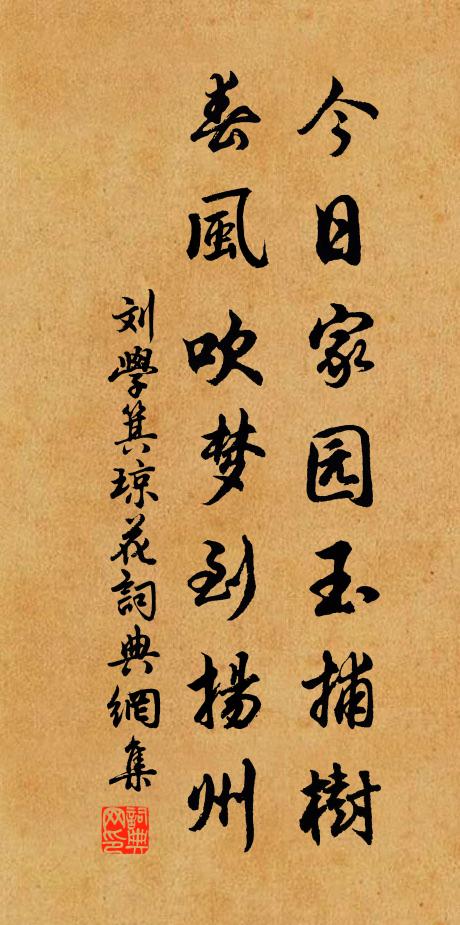 今日家园玉捕樹
春風吹梦到揚州
刘學箕琼花詞典網集
詞典网印